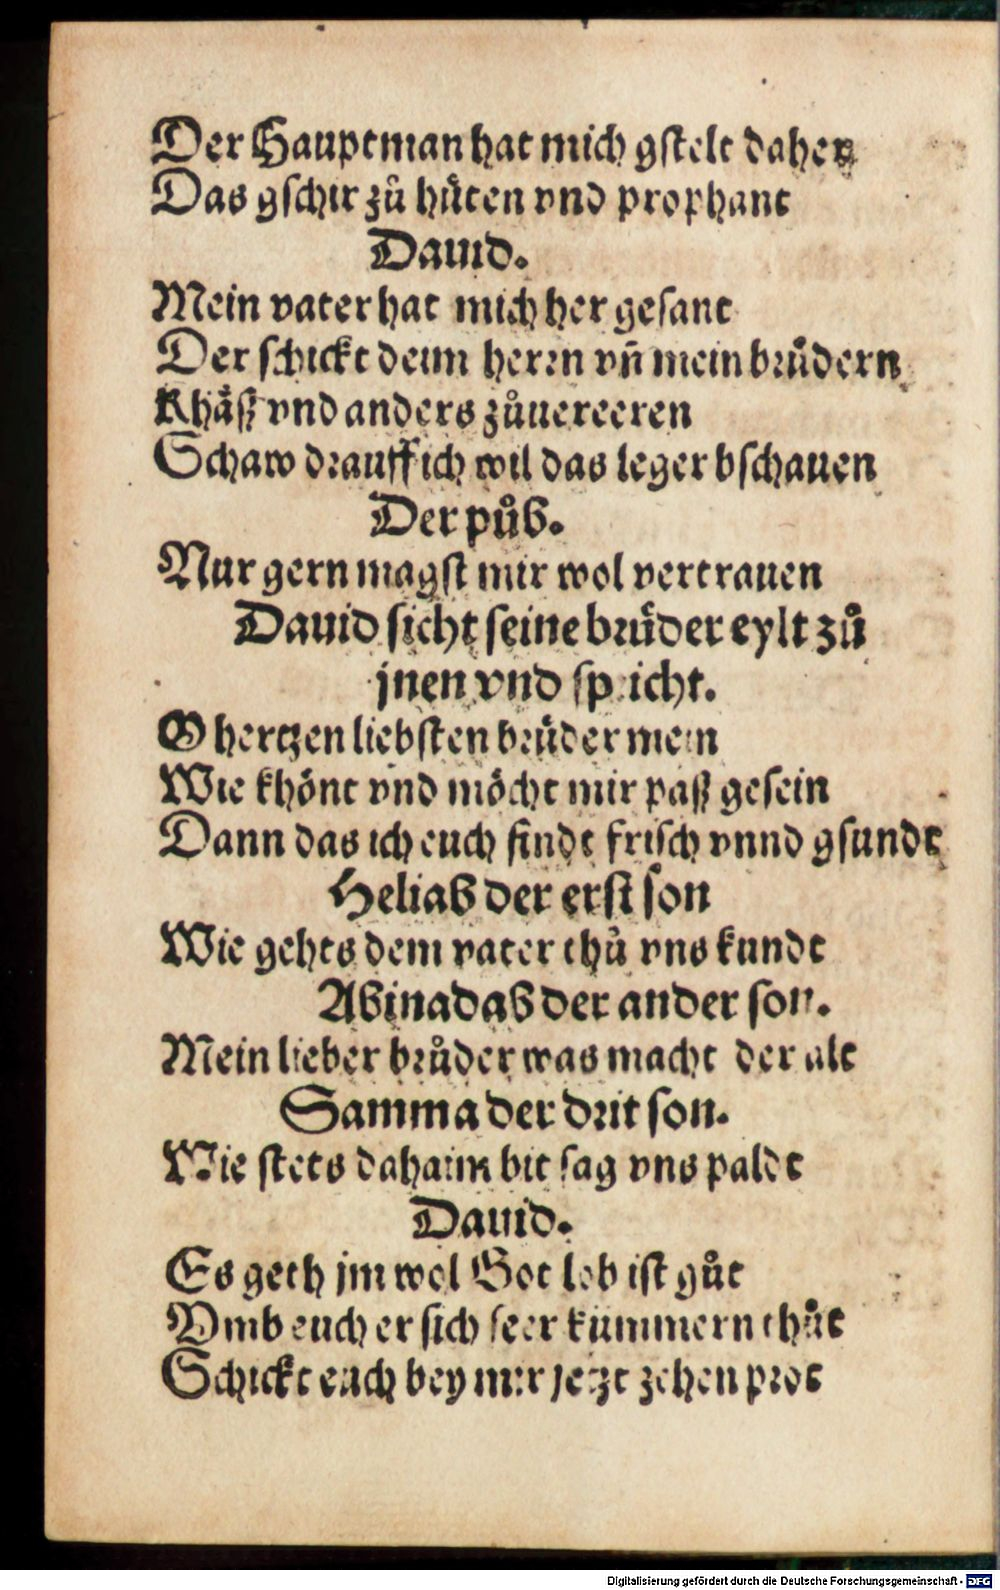 Der Hauptman hat mich gstelt daher
Das gschir zů hüten vnd prophant
Dauid.
Mein vater hat mich her gesant
Der schickt deim herrn vñ mein brůdern
Khäß vnd anders zůuereeren
Schaw drauff ich wil das leger bschauen
Der půb.
Nur gern magst mir wol vertrauen
Dauid sicht seine brüder eylt zů
jnen vnd spricht.
O hertzen liebsten brüder mein
Wie khönt vnd möcht mir paß gesein
Dann das ich euch findt frisch vnnd gsundt
Heliab der erst son
Wie gehts dem vater thů vns kundt
Abinadab der ander son.
Mein lieber brůder was macht der alt
Samma der drit son.
Wie stets dahaim bit sag vns paldt
Dauid.
Es geth jm wol Got lob ist gůt
Vmb euch er sich seer kummern thůt
Schickt euch bey mir jetzt zehen prot
Digitalisierung gefördert durch die Deutsche Forschungsgemeinschaft - DFG